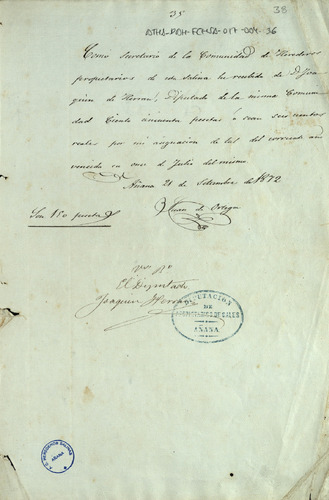 35
38
ATHA-PDH-FCHSA-017-004-36
Como secretario de la Comunidad de Herederos
propietarios de esta salina he recibido de D. Joa
quin de Herran, Diputado de la misma Comuni
dad Ciento cincuenta pesetas ó sean seiscientos
reales por mi asignacion de del corriente año
vencido en once de Julio del mismo.
Añana 21 de Setiembre de 1872
Juan de Ortega
Son 150 pesetas
Vº Bº
El Diputado
Joaquin Herran
DIPUTACION
DE
PROPIETARIOS DE SALES
AÑANA
AÑANA